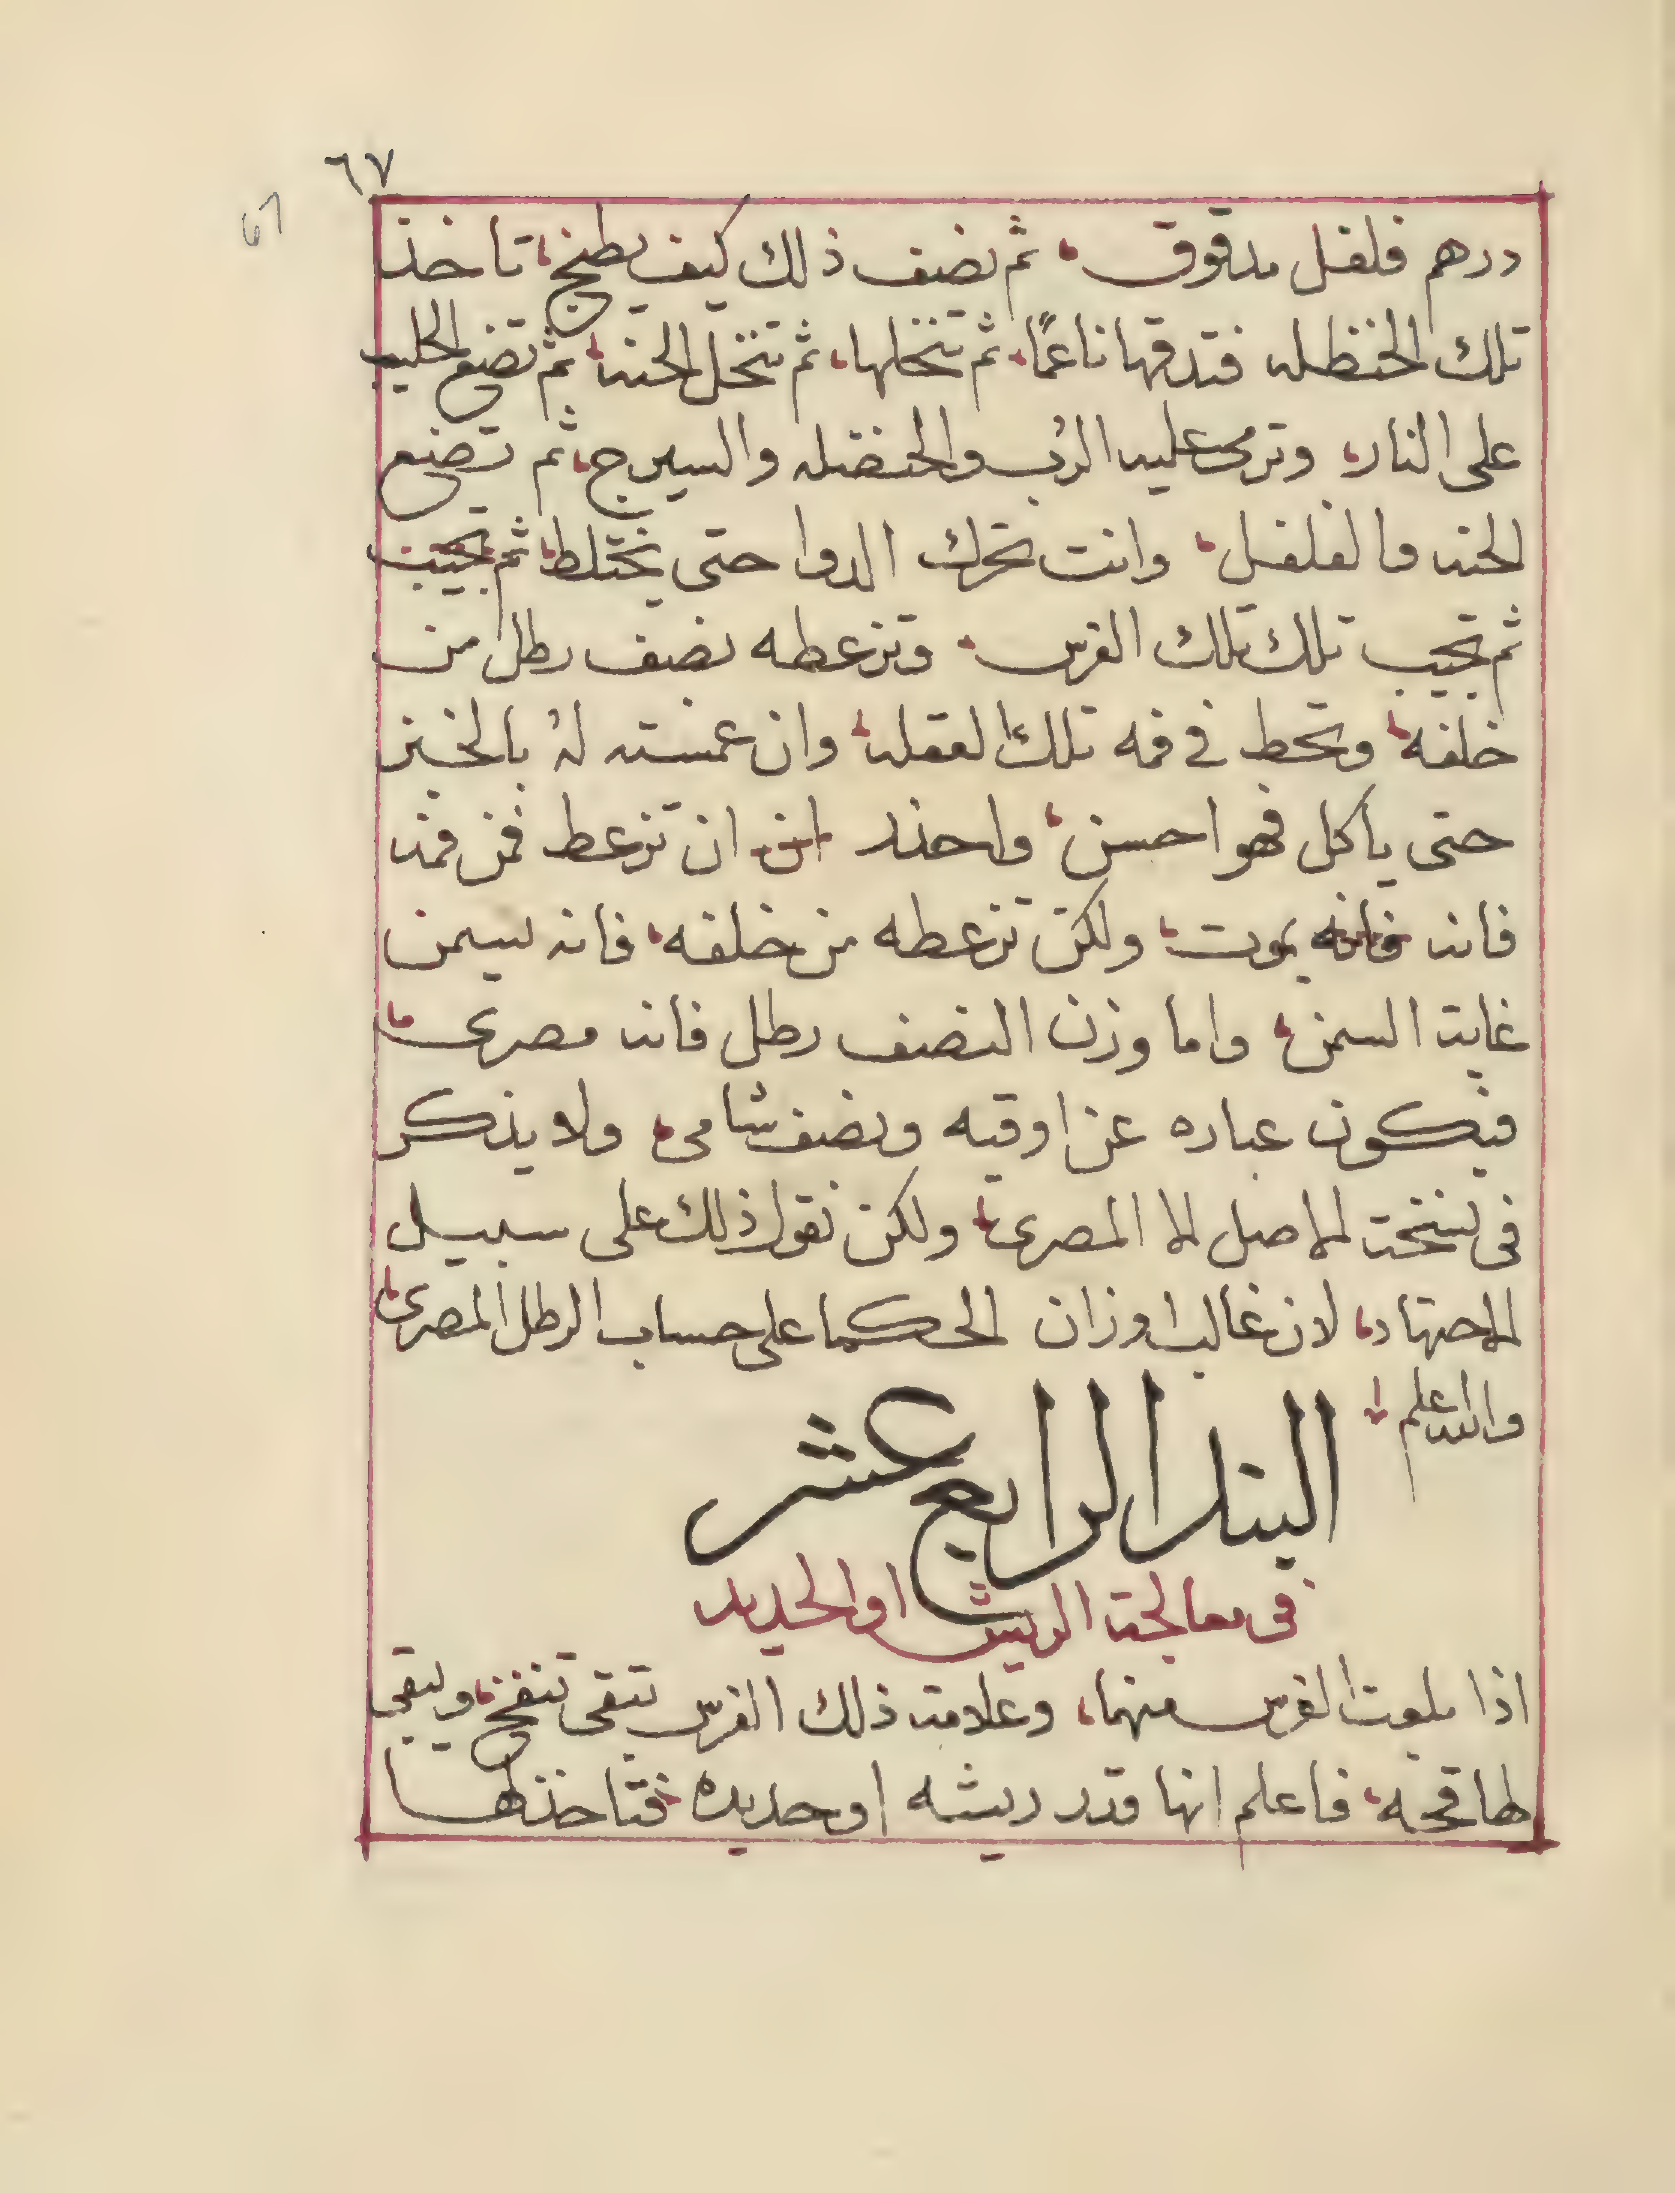 ٦٧
67
درهم فلفل مدقوق، ثم نصف ذلك كيف يطبخ، تاخذ
تلك الحنظله فتدقها ناعمًا، ثم تنخلها، ثم تنخل الحنه، ثم تضع الحليب
على النار، وترمى عليه الرُب والحنضله والسيرج، ثم تضع
الحنه والفلفل، وانت تحرك الدوا حتى يختلط، ثم تجيب
ثم تجيب تلك تلك الفرس، وتزعطه نصف رطل من
خلفه، وتحط في فمه تلك العقله، وان غمسته لهُ بالخبز
حتى ياكل فهو احسن، واحذر ان ان تزعط فمن فمه
فانه فانه يموت، ولكن تزعطه من خلفه، فانه يسمن
غاية السمن، واما وزن النصف رطل فانه مصرى،
فيكون عباره عن اوقيه ونصف شامى، ولا يذكر
فى نسخة الاصل الا المصرى، ولكن نقول ذلك على سبيل
الاجتهاد، لان غالب اوزان الحكما على حساب الرطل المصرى،
والله اعلم،
البند الرابع عشر
فى معالجة الريش او الحديد
اذا بلعت الفرس منهما، وعلامة ذلك الفرس تبقى تنفخ، ويبقى
لها قحه، فاعلم انها قدر ريشه او حديده، فتاخذ لها